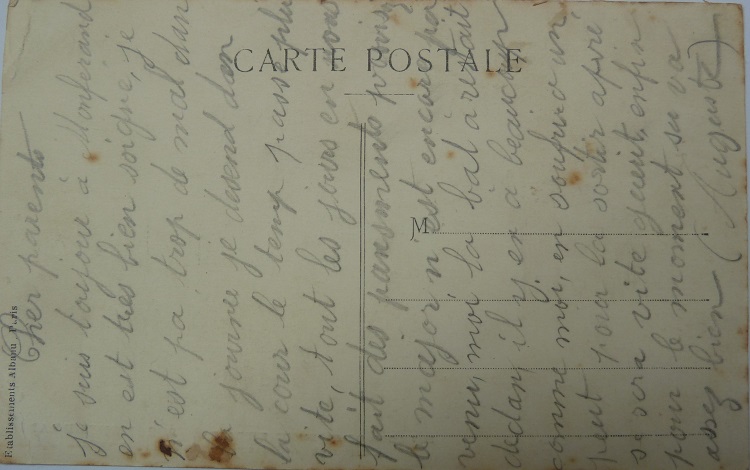 Etablissements Albanu, Paris
Cher parents
je suis toujour à Monferand
en est tres bien soigné, je
n'est pa trop de mal dan
la journée je desend dan
la cour le temp passe plu
vite, tout les jours en vous
fait des pansments
le major n'est encore pa
venu, moi la bal à restait
dedan, il y en à beaucoup
comme moi, en soufrira un
peut pour la sortir apré
se sera vite guerit, enfin
pour le moment sa va
assez bien (Auguste)
CARTE POSTALE
M